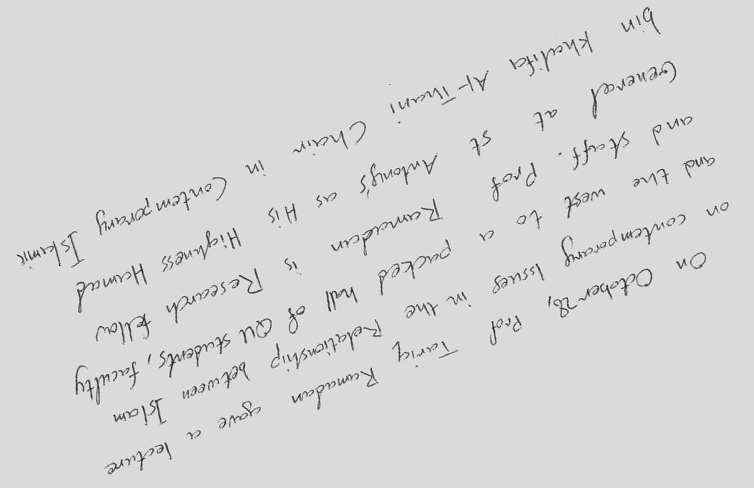 On October 28, Prof Tariq Ramadan gave a lecture
on contemporary Issues in the Relationship between Islam
and the west to a packed hall of QU students, faculty
and staff. Prof Ramadan is Research fellow
General at st Antony's as His Highness Hamad
bin khalifa Al-Thani Chair in Contemporary Islamic